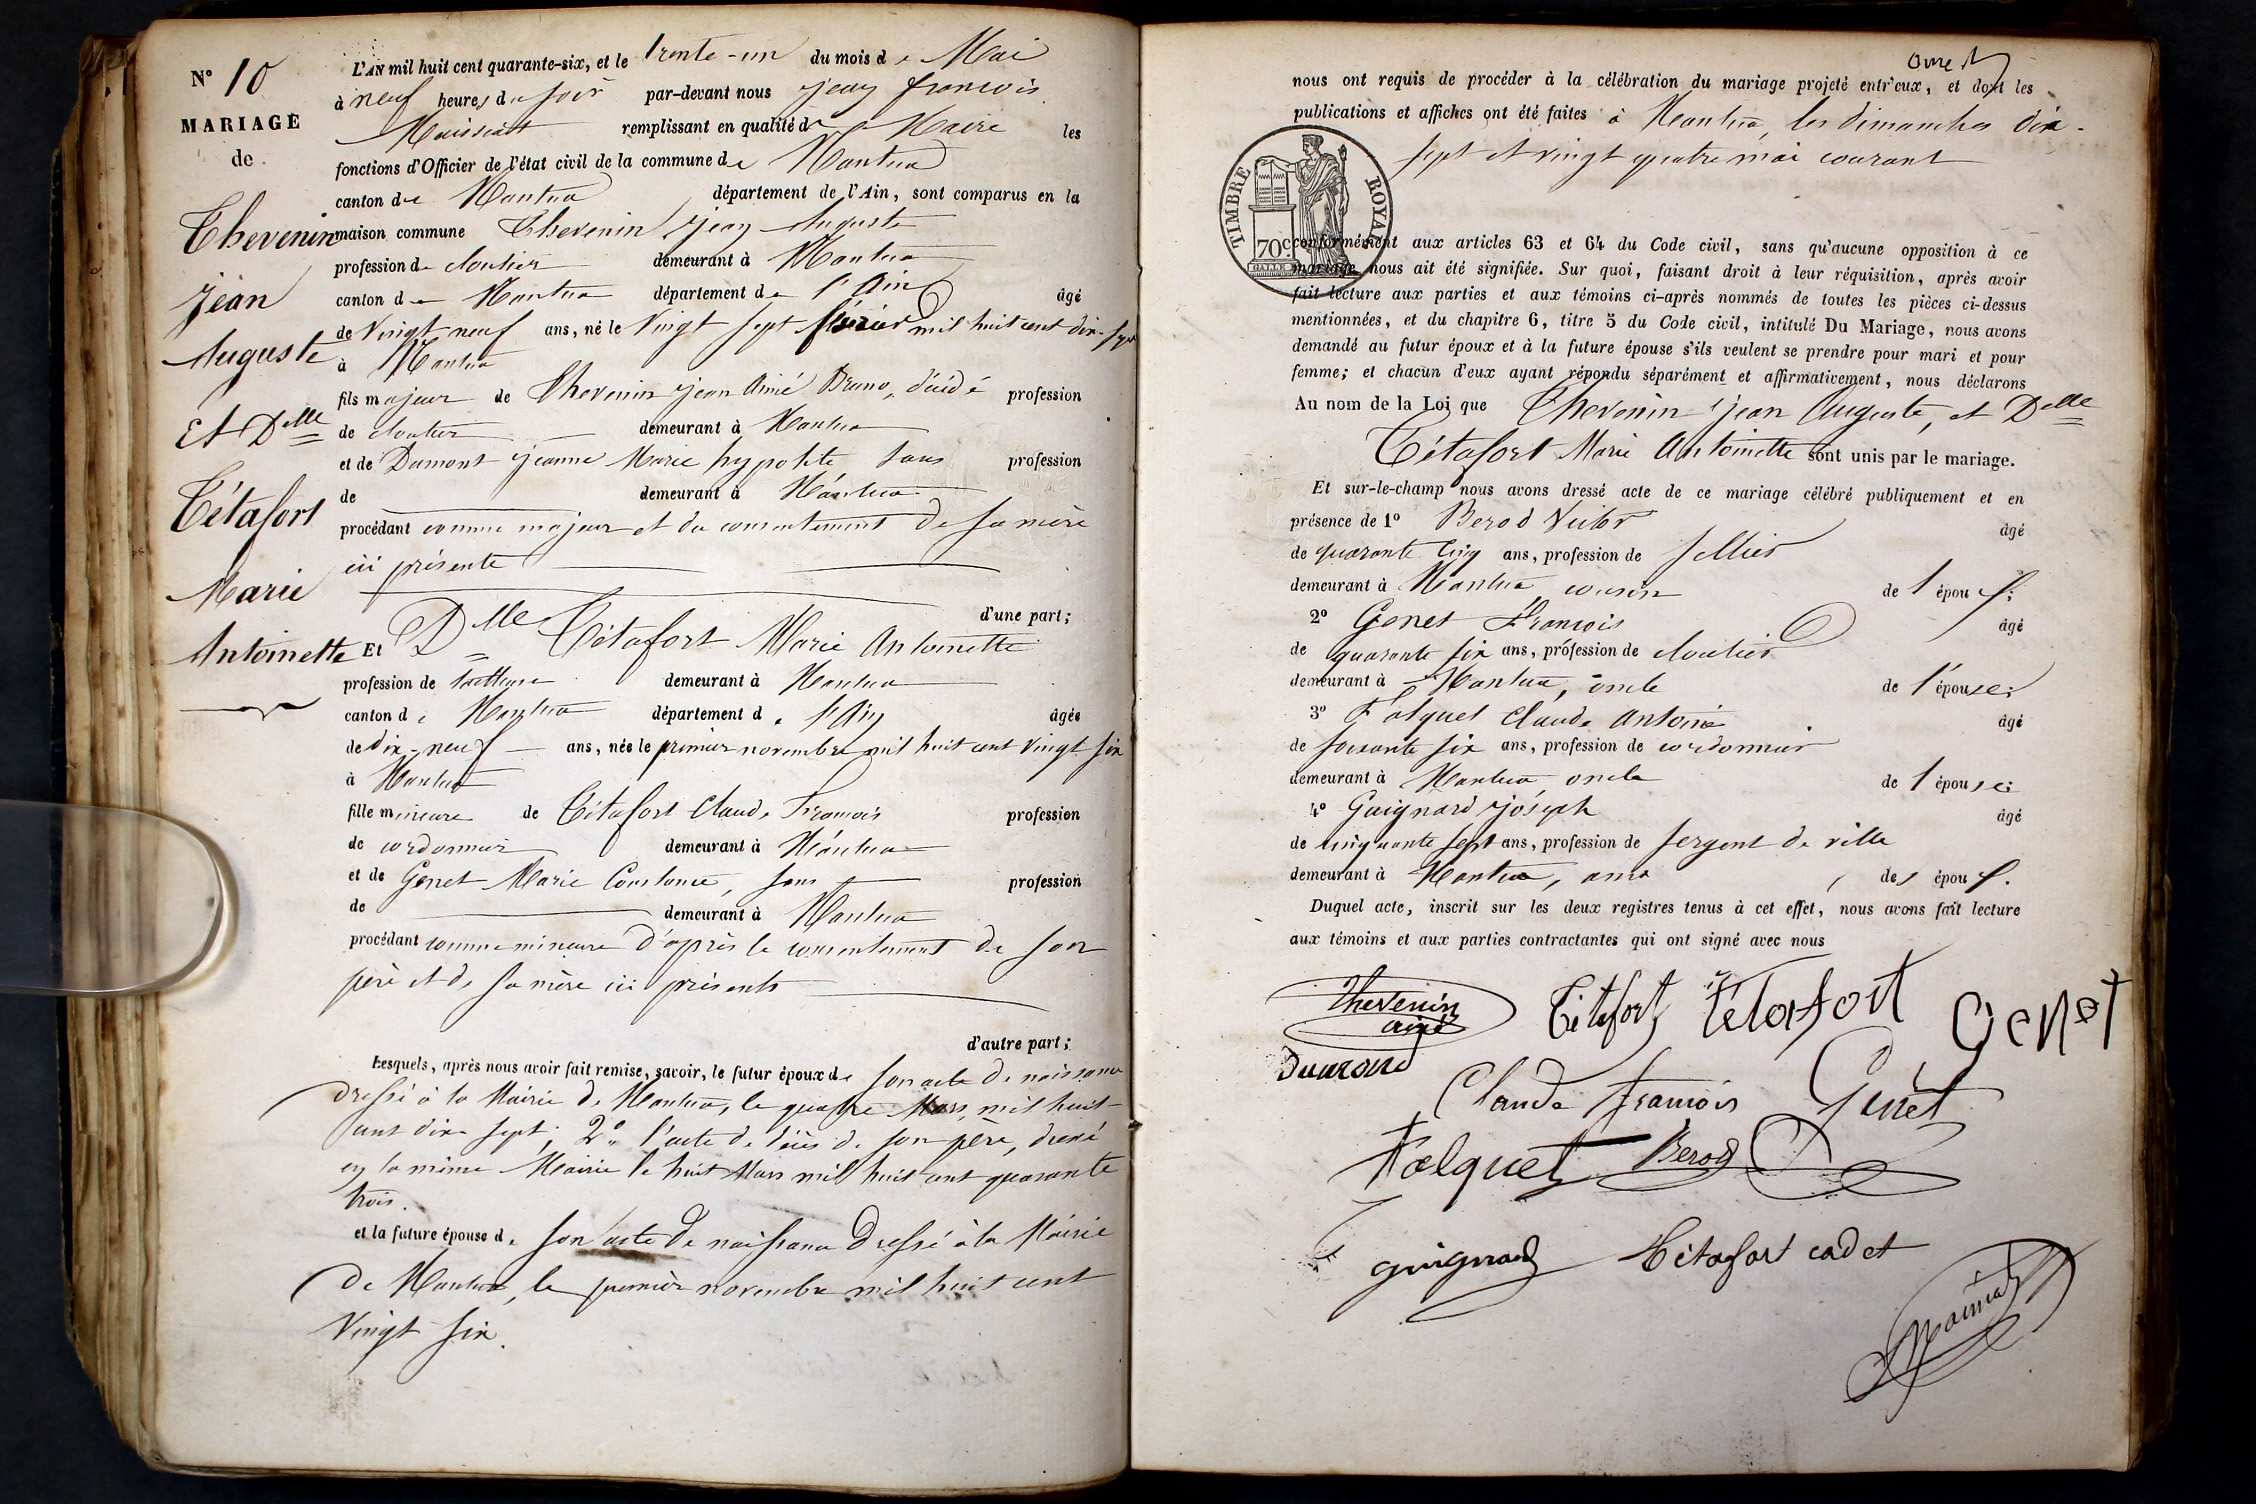 N° 10
MARIAGE
de
Thevenin
Jean
Auguste
Et Dlle
Tétafort
Marie
Antoinette
L'AN mil huit cent quarante-six, et le trente-un du mois de Mai
à neuf heures du soir par-devant nous Jean François
Maissiat remplissant en qualité de Maire les
fonctions d'Officier de l'état civil de la commune de Nantua
canton de Nantua département de l'Ain, sont comparus en la
maison commune Thevenin Jean Auguste
profession de cloutier demeurant à Nantua
canton de Nantua département de l'Ain âgé
de Vingt neuf ans, né le Vingt sept février mil huit cent dix-sept
à Nantua
fils majeur de Thevenin Jean Aimé Bruno, décédé profession
de cloutier demeurant à Nantua
et de Dumont Jeanne Marie hypolite, sans profession
de demeurant à Nantua
procédant comme majeur et du consentement de sa mère
ici présente
d'une part;
Et Dlle Tétafort Marie Antoinette
profession de demeurant à Nantua
canton de Nantua département de l'Ain âgée
de dix-neuf ans, née le premier novembre mil huit cent vingt six
à Nantua
fille mineure de Tétafort Claude François profession
de cordonnier demeurant à Nantua
et de Genet Marie Constance, sans profession
de demeurant à Nantua
procédant comme mineure d'après le consentement de son
père et de sa mère ici présents
d'autre part;
Lesquels, après nous avoir fait remise, savoir, le futur époux de son acte de naissance
dressé à la Mairie de Nantua, le quatre Mars mil huit-
cent dix-sept; 2° l'acte de décès de son père, dressé
en la même Mairie le huit Mars mil huit cent quarante
trois.
et la future épouse de son acte de naissance dressé à la Mairie
de Nantua, le premier novembre mil huit cent
Vingt six.
onze
nous ont requis de procéder à la célébration du mariage projeté entr'eux, et dont les
publications et affiches ont été faites à Nantua, les dimanches dix-
sept et vingt quatre mai courant
TIMBRE ROYAL
70c
conformément aux articles 63 et 64 du Code civil, sans qu'aucune opposition à ce
mariage nous ait été signifiée. Sur quoi, faisant droit à leur réquisition, après avoir
fait lecture aux parties et aux témoins ci-après nommés de toutes les pièces ci-dessus
mentionnées, et du chapitre 6, titre 5 du Code civil, intitulé Du Mariage, nous avons
demandé au futur époux et à la future épouse s'ils veulent se prendre pour mari et pour
femme; et chacun d'eux ayant répondu séparément et affirmativement, nous déclarons
Au nom de la Loi que Thevenin Jean Auguste, et Dlle
Tétafort Marie Antoinette sont unis par le mariage.
Et sur-le-champ nous avons dressé acte de ce mariage célébré publiquement et en
présence de 1° Berod Victor âgé
de quarante cinq ans, profession de sellier
demeurant à Nantua, cousin de l'époux;
2° Genet François âgé
de quarante six ans, profession de cloutier
demeurant à Nantua, oncle de l'épouse;
3° Folquet Claude Antoine âgé
de soixante six ans, profession de cordonnier
demeurant à Nantua, oncle de l'épouse;
4° Guignard Joseph âgé
de cinquante sept ans, profession de sergent de ville
demeurant à Nantua, ami des époux.
Duquel acte, inscrit sur les deux registres tenus à cet effet, nous avons fait lecture
aux témoins et aux parties contractantes qui ont signé avec nous
thevenin
ainé
Tétafort
tétafort
Genet
Claude François Genet
Folquet
Berod
guignard
Tétafort cadet
Maissiat